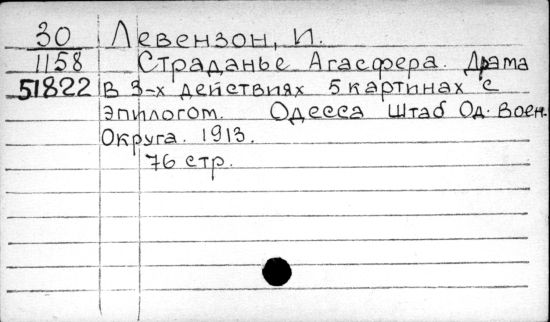 30 Левензон, И.
1158 Страданье Агасфера. Драма
51822 в 3-х действиях 5 картинах с
эпилогом. Одесса Штаб Од. Воен.
Округа. 1913.
76 стр.